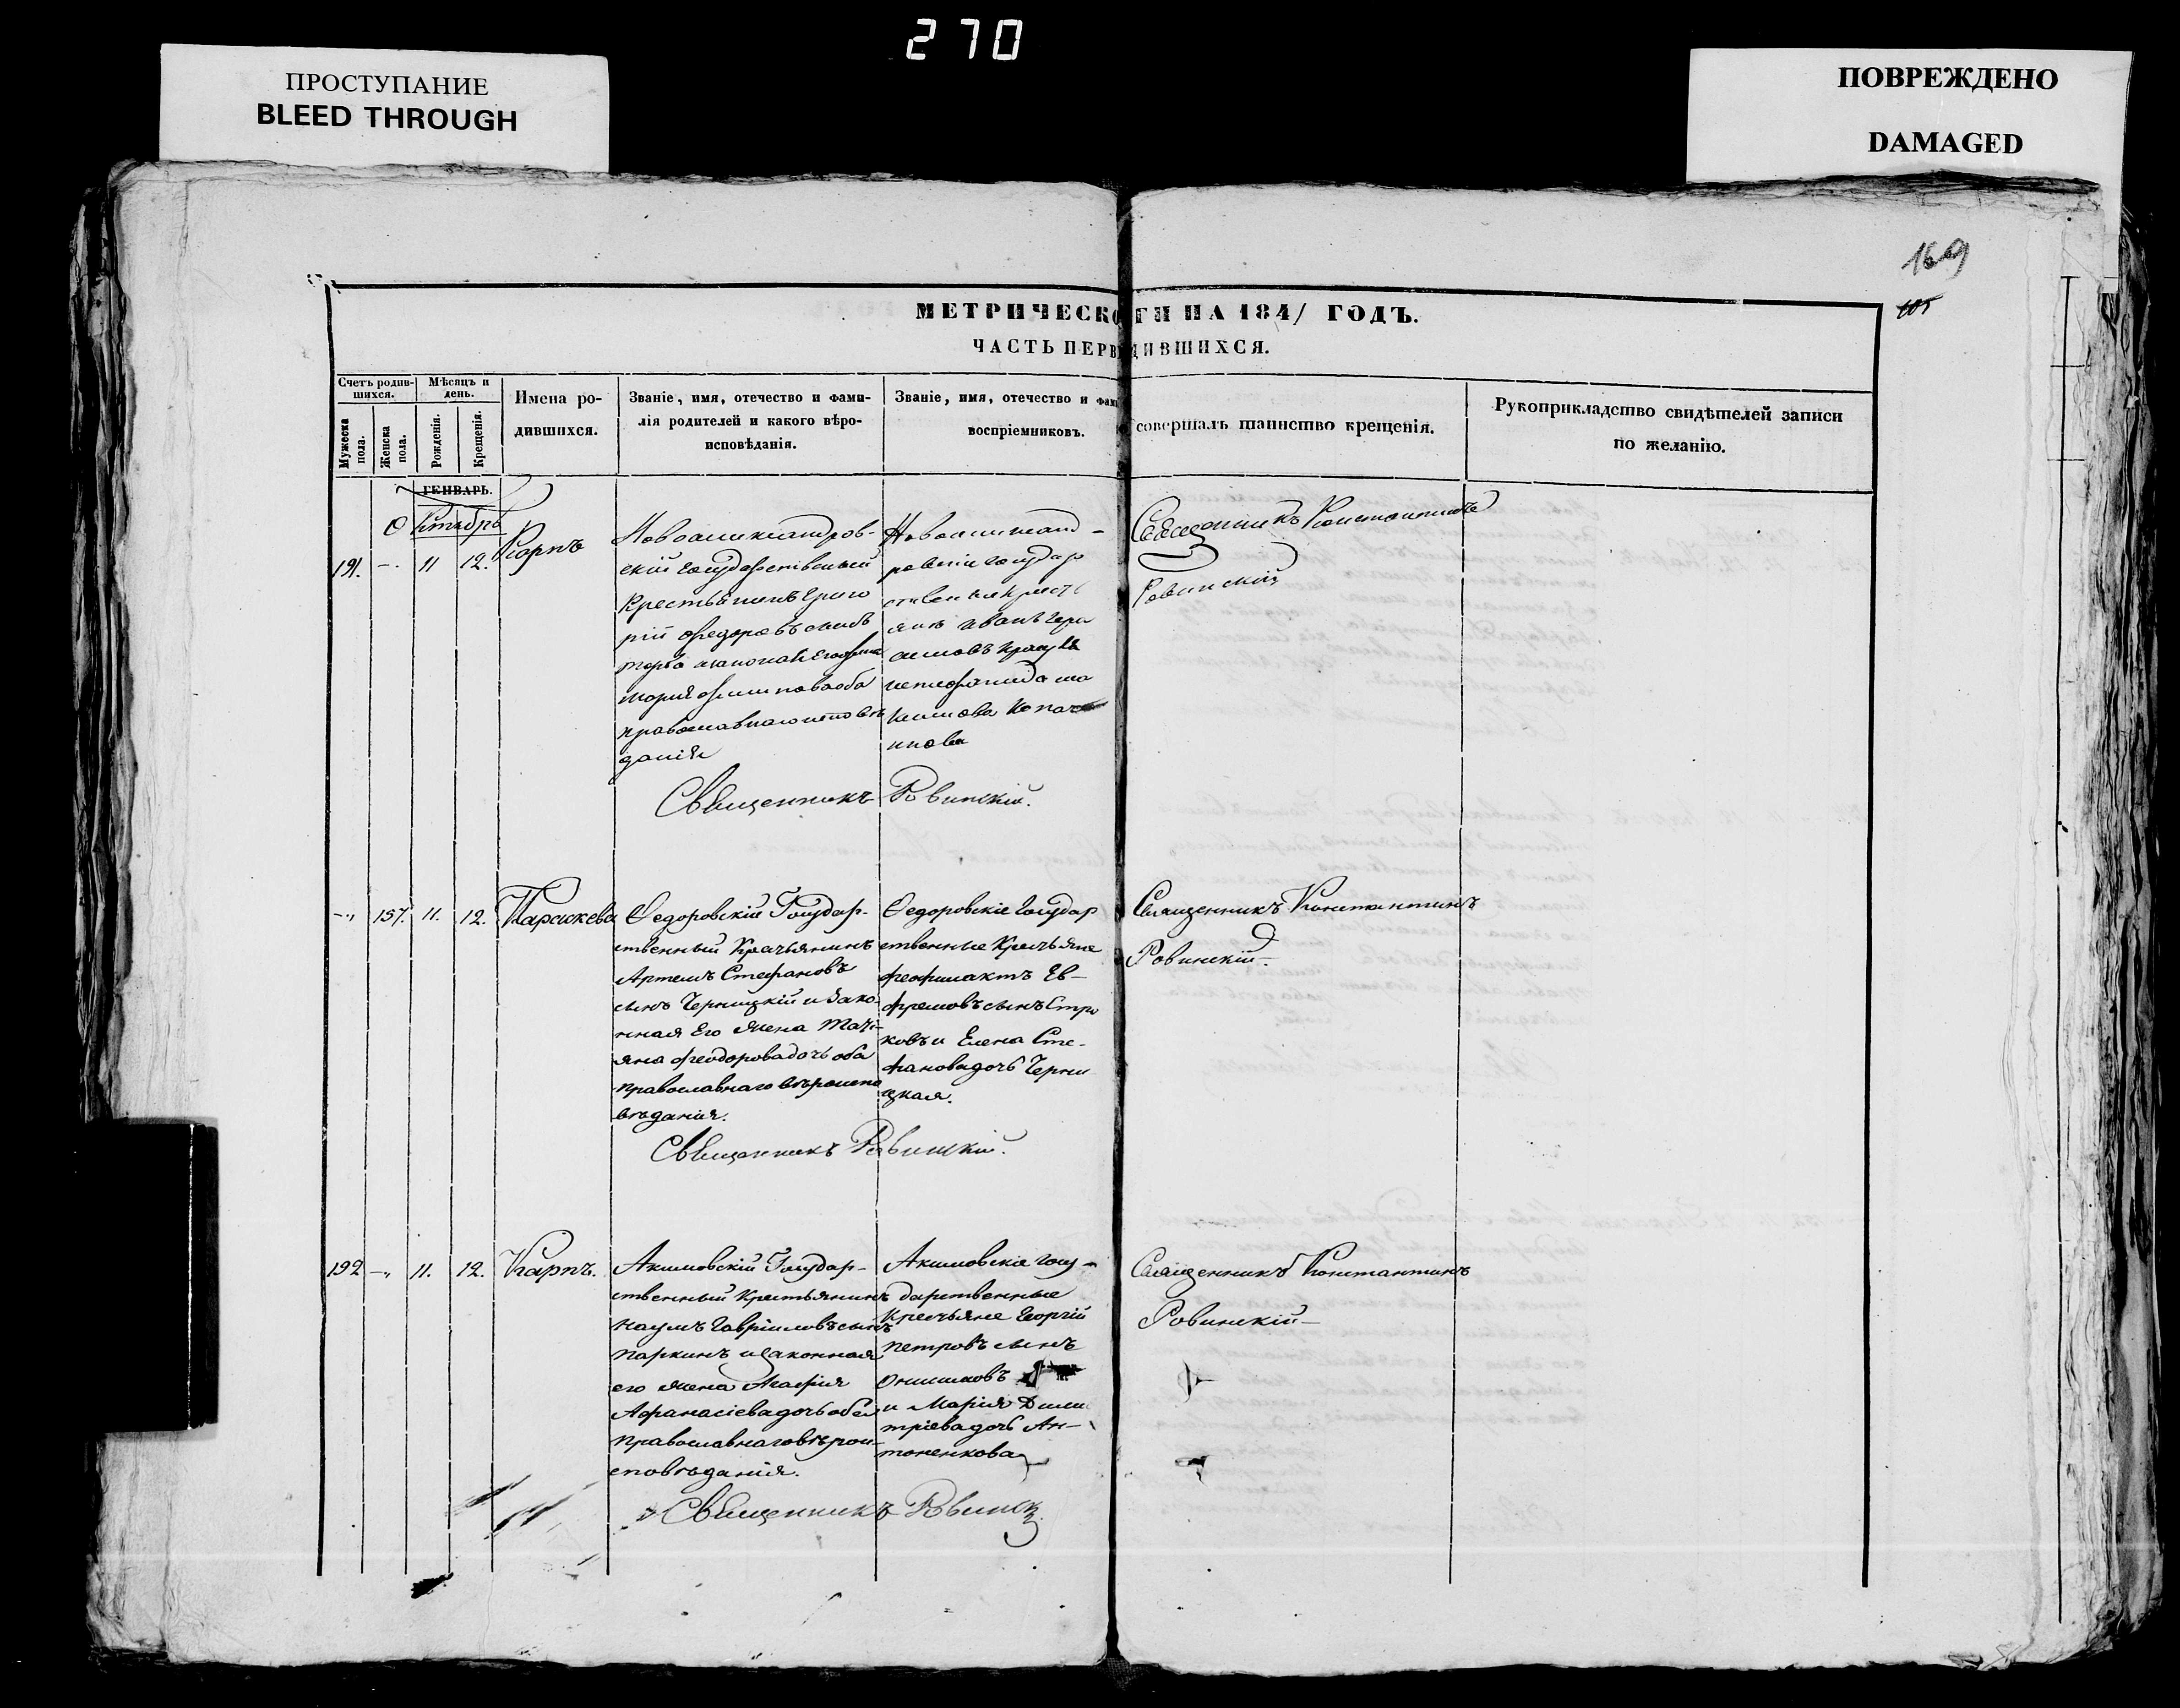 270
ПРОСТУПАНИЕ
BLEED THROUGH
ПОВРЕЖДЕНО
DAMAGED
169
МЕТРИЧЕСКО ГИ НА 1841 ГОДЪ.
ЧАСТЬ ПЕРВ ДИВШИХСЯ.
Счетъ родив-
шихся.
Мужеска пола.
Женска пола.
Мѣсяцъ и
день.
Рожденія.
Крещенія.
Имена ро-
дившихся.
Званіе, имя, отечество и фами-
лія родителей и какого вѣро-
исповѣданія.
Званіе, имя, отечество и фам
воспріемниковъ.
совершалъ таинство крещенія.
Рукоприкладство свидѣтелей записи
по желанію.
ГЕНВАРЬ.
Октябрь
191. -. 11 12. Карпъ
Новоалександров-
скій государственный
крестьянинъ Григо
рій Федоровъ сынъ
православнаго исповѣ
данія
Новоалександ-
ровскіе государ
ственные кресть
яне Иванъ
Священникъ Константинъ
Ровинскій
Священникъ Ровинскій.
-" 157. 11. 12. Параскева
Ѳедоровскій Государ-
ственный Крестьянинъ
Артемъ Стефановъ
сынъ Черницкій и Зако-
нная Его жена Таті-
яна Феодорова дочь оба
православнаго вѣроиспо
вѣданія.
Ѳедоровскіе Государ
ственные Крестьяне
Феофилактъ Ев-
фремовъ сынъ Стри
ковъ и Елена Сте-
фанова дочь Черни
цкая.
Священникъ Константинъ
Ровинскій.
Священникъ Ровинскій.
192 -" 11. 12. Карпъ.
Акимовскій Государ-
ственный Крестьянинъ
Наумъ Гавріиловъ сынъ
Паркинъ и законная
его жена Марія
Афанасіева дочь оба
православнаго вѣрои-
сповѣданія.
Акимовскіе госу-
дарственные
Крестьяне Георгій
Петровъ сынъ
Онишковъ
и Марія Дими
тріева дочь Ан-
тоненкова
Священникъ Константинъ
Ровинскій
Священникъ Ровинск